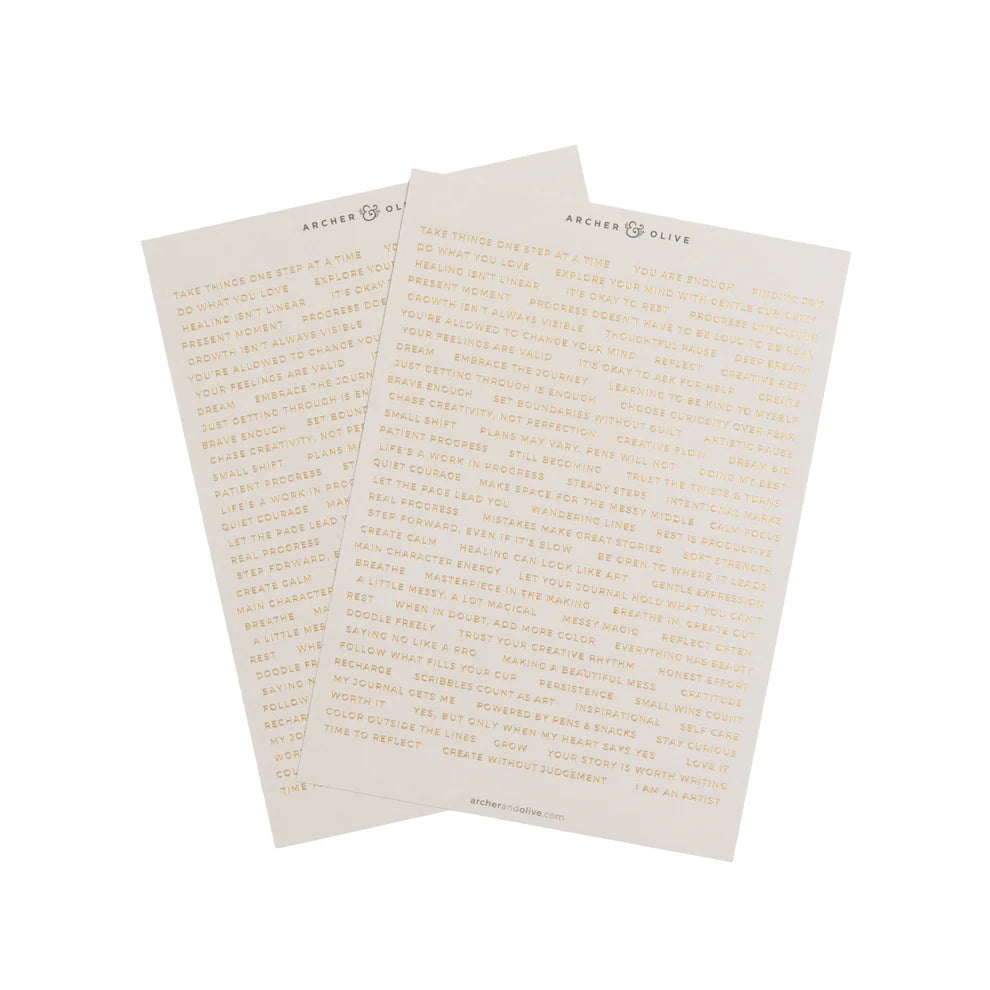 ARCHER & OLI
TAKE THINGS ONE STEP AT A TIME YO
DO WHAT YOU LOVE EXPLORE YOU
HEALING ISN'T LINEAR IT'S OKAY
PRESENT MOMENT PROGRESS DOE
GROWTH ISN'T ALWAYS VISIBLE
YOU'RE ALLOWED TO CHANGE YOU
YOUR FEELINGS ARE VALID
DREAM EMBRACE THE JOURN
JUST GETTING THROUGH IS EN
BRAVE ENOUGH SET BOUN
CHASE CREATIVITY, NOT PER
SMALL SHIFT PLANS M
PATIENT PROGRESS ST
LIFE'S A WORK IN PROG
QUIET COURAGE MAK
LET THE PAGE LEAD Y
REAL PROGRESS
STEP FORWARD, E
CREATE CALM
MAIN CHARACTER
BREATHE MA
A LITTLE MESS
REST WHE
DOODLE FREE
SAYING NO
FOLLOW
RECHAR
MY JO
WOR
CO
TIME T
ARCHER & OLIVE
TAKE THINGS ONE STEP AT A TIME YOU ARE ENOUGH FINDING JOY
DO WHAT YOU LOVE EXPLORE YOUR MIND WITH GENTLE CURIOSITY
HEALING ISN'T LINEAR IT'S OKAY TO REST PROGRESS UNFOLDING
PRESENT MOMENT PROGRESS DOESN'T HAVE TO BE LOUD TO BE REAL
GROWTH ISN'T ALWAYS VISIBLE THOUGHTFUL PAUSE DEEP BREATH
YOU'RE ALLOWED TO CHANGE YOUR MIND REFLECT CREATIVE REST
YOUR FEELINGS ARE VALID IT'S OKAY TO ASK FOR HELP CREATE
DREAM EMBRACE THE JOURNEY LEARNING TO BE KIND TO MYSELF
JUST GETTING THROUGH IS ENOUGH CHOOSE CURIOSITY OVER FEAR
BRAVE ENOUGH SET BOUNDARIES WITHOUT GUILT ARTISTIC PAUSE
CHASE CREATIVITY, NOT PERFECTION CREATIVE FLOW DREAM BIG
SMALL SHIFT PLANS MAY VARY, PENS WILL NOT DOING MY BEST
PATIENT PROGRESS STILL BECOMING TRUST THE TWISTS & TURNS
LIFE'S A WORK IN PROGRESS STEADY STEPS INTENTIONAL MARKS
QUIET COURAGE MAKE SPACE FOR THE MESSY MIDDLE CALM FOCUS
LET THE PAGE LEAD YOU WANDERING LINES REST IS PRODUCTIVE
REAL PROGRESS MISTAKES MAKE GREAT STORIES SOFT STRENGTH
STEP FORWARD, EVEN IF IT'S SLOW BE OPEN TO WHERE IT LEADS
CREATE CALM HEALING CAN LOOK LIKE ART GENTLE EXPRESSION
MAIN CHARACTER ENERGY LET YOUR JOURNAL HOLD WHAT YOU CAN'T
BREATHE MASTERPIECE IN THE MAKING BREATHE IN, CREATE OUT
A LITTLE MESSY, A LOT MAGICAL MESSY MAGIC REFLECT OFTEN
REST WHEN IN DOUBT, ADD MORE COLOR EVERYTHING HAS BEAUTY
DOODLE FREELY TRUST YOUR CREATIVE RHYTHM HONEST EFFORT
SAYING NO LIKE A PRO MAKING A BEAUTIFUL MESS GRATITUDE
FOLLOW WHAT FILLS YOUR CUP PERSISTENCE SMALL WINS COUNT
RECHARGE SCRIBBLES COUNT AS ART INSPIRATIONAL SELF CARE
MY JOURNAL GETS ME POWERED BY PENS & SNACKS STAY CURIOUS
WORTH IT YES, BUT ONLY WHEN MY HEART SAYS YES LOVE IT
COLOR OUTSIDE THE LINES GROW YOUR STORY IS WORTH WRITING
TIME TO REFLECT CREATE WITHOUT JUDGEMENT I AM AN ARTIST
archerandolive.com